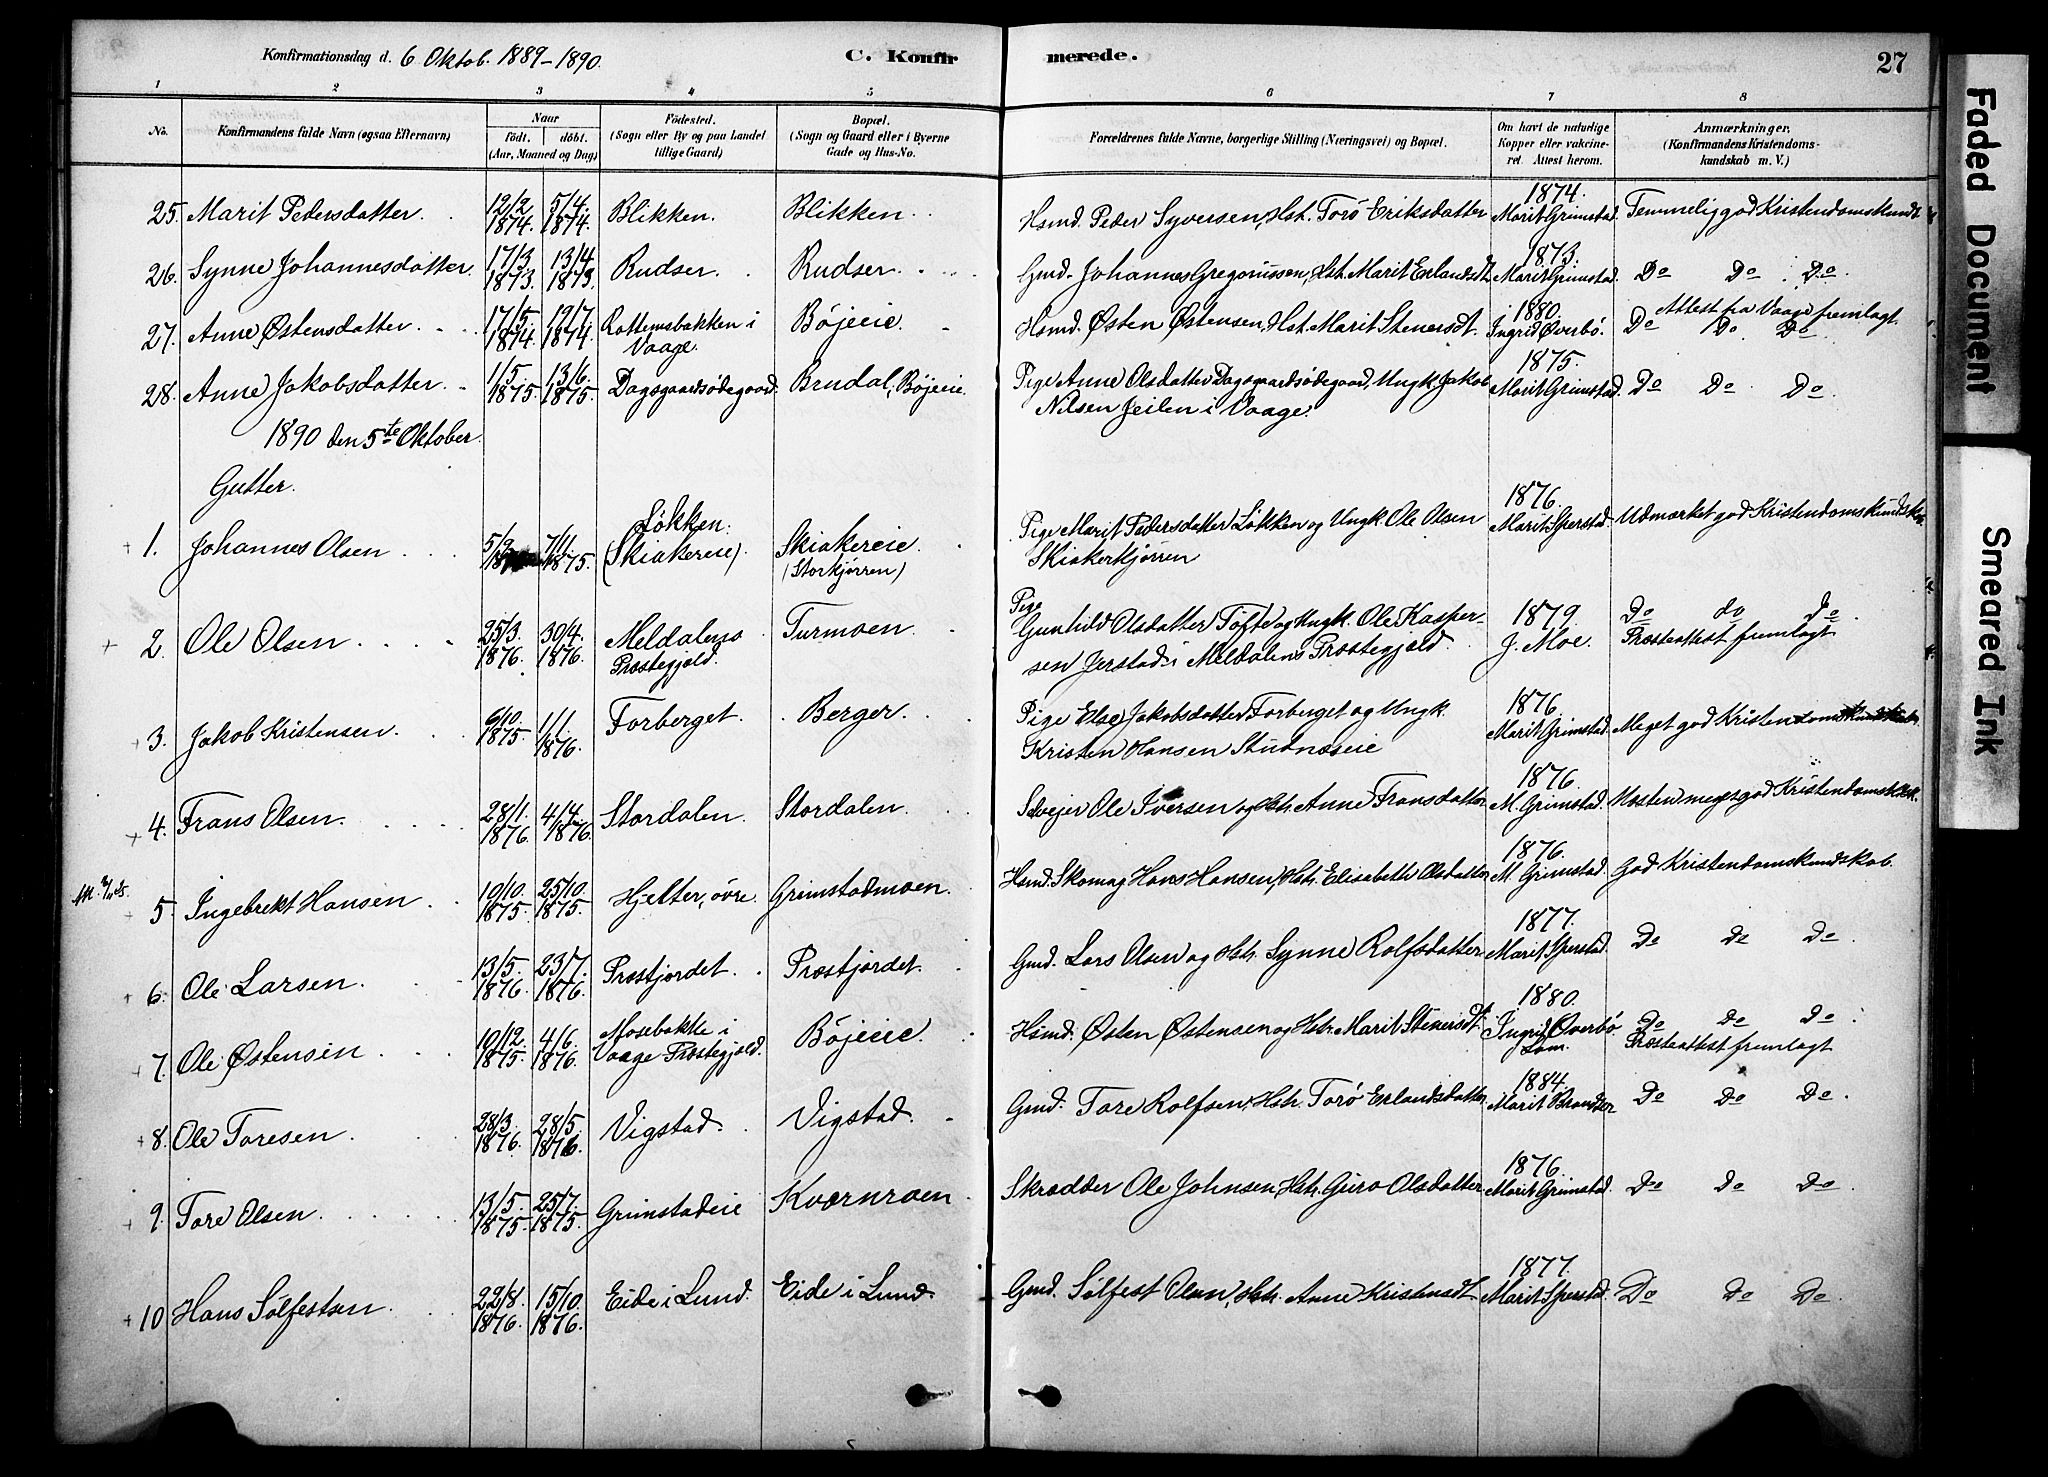 Konfirmationsdag d. 6 Oktob. 1889-1890. C. Konfir merede. 27
1 2 3 4 5 6 7 8
No. Konfirmandens fulde Navn (ogsaa Efternavn) Naar født. døbt. (Aar, Maaned og Dag) Fødested. (Sogn eller By og paa Landet tillige Gaard) Bopæl. (Sogn og Gaard eller i Byerne Gade og Hus-No. Forældrenes fulde Navne, borgerlige Stilling (Næringsvei) og Bopæl. Om havt de naturlige Kopper eller vakcineret. Attest herom. Anmærkninger. (Konfirmandens Kristendomskundskab m. V.)
25. Marit Pedersdatter. 12/2 1874. 5/4. 1874. Blikken. Blikken. Hsmd. Peder Syversen, Hst. Torø Eriksdatter 1874. Marit Grimstad. Temmelig god Kristendomskundsk
26. Synne Johannesdatter. 17/3 1873. 13/4 1873. Rudser. Rudser. Gmd. Johannes Gregoriussen, Hst. Marit Erlandsdt. 1873. Marit Grimstad. Do Do Do
27. Anne Østensdatter. 17/5 1874. 12/7 1874. Rottemsbakken i Vaage. Bøjeeie. Hsmd. Østen Østensen, Hst. Marit Stenersdt. 1880. Ingrid Øverbø. Attest fra Vaage fremlagt. Do Do Do
28. Anne Jakobsdatter. 1/5. 1875. 13/6. 1875. Dagsgaardsødegaard. Brudal, Bøjeeie. Pige Anne Olsdatter Dagsgaardsødegaard, Ungk. Jakob
Nilsen Jeilen i Vaage. 1875. Marit Grimstad. Do Do Do
1890 den 5te Oktober.
Gutter.
1. Johannes Olsen 5/9 7/11. 1875. Løkken. (Skiakereie). Skiakereie (Storkjørren) Pige Marit Pedersdatter Løkken og Ungk. Ole Olsen
Skiakerkjørren 1876. Marit Sperstad. Udmærket god Kristendomskundskab
2. Ole Olsen 25/3. 1876. 30/4. 1876. Meldalens Præstegjeld. Turmoen. Pige
Gunhild Olsdatter Tøfte og Ungk. Ole Kaspersen
Jerstad i Meldalens Præstegjeld. 1879. J. Moe. Do do Do Præsteattest fremlagt
3. Jakob Kristensen. 6/10. 1875. 1/1. 1876. Forberget. Berger. Pige Else Jakobsdatter Forberget og Ungk.
Kristen Hansen Stubnæseie 1876. Marit Grimstad. Meget god Kristendomskundskab
4. Frans Olsen. 28/1. 1876. 4/4. 1876. Stordalen. Stordalen. Selvejer Ole Iversen og Hst. Anne Fransdatter 1876. M. Grimstad. Næsten meget god Kristendomsk.
5. Ingebrekt Hansen 10/10. 1875. 25/10. 1875. Hjelter, øvre. Grimstadmoen. Hsmd. Skomag Hans Hansen, Hst. Elisabeth Olsdatter 1876. M. Grimstad. God Kristendomskundskab.
6. Ole Larsen. 13/5. 1876. 23/7. 1876. Præstjordet. Præstjordet. Gmd. Lars Olsen og Hst. Synne Rolfsdatter 1877. Marit Sperstad. Do Do Do
7. Ole Østensen 10/12. 1875. 4/6. 1876. Mosebakke i Vaage Præstegjeld. Bøjeeie. Hsmd. Østen Østensen og Hst. Marit Stenersdt. 1880. Ingrid Øverbø. Lom. Do Do Do Præsteattest fremlagt
8. Ole Toresen. 28/3. 1876. 28/5. 1876. Vigstad. Vigstad. Gmd. Tore Rolfsen, Hst. Torø Erlandsdatter. 1884. Marit Brandser Do Do Do.
9. Tore Olsen. 13/5. 1875. 25/7. 1875. Grimstadeie Kværnroen. Skrædder Ole Johnsen, Hst. Guro Olsdatter. 1876. Marit Grimstad. Do Do Do
10 Hans Sølfestsøn. 22/8. 1876. 15/10. 1876. Eide i Lund. Eide i Lund. Gmd. Sølfest Olsen, Hst. Anne Kristensdt. 1877. Marit Sperstad. Do Do Do
Faded Document
Smeared Ink